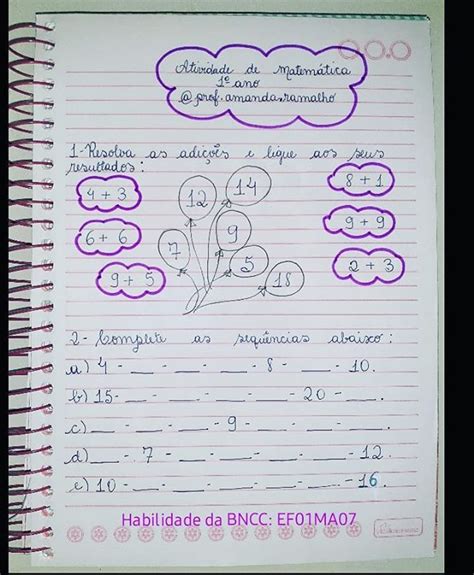 Atividade de matemática
1º ano
@prof.amanda.ramalho
1-Resolva as adições e ligue aos seus
resultados:
4 + 3
12
14
8 + 1
6 + 6
7
9
9 + 9
9 + 5
5
18
2 + 3
2- Complete as sequências abaixo:
a) 4 - __ - __ - __ - 8 - __ - 10.
b) 15- __ - __ - __ - __ - 20 - __.
c) __ - __ - __ - 9 - __ - __ - __.
d) __ - 7 - __ - __ - __ - __ - 12.
e) 10 - __ - __ - __ - __ - __ -16.
Habilidade da BNCC: EF01MA07